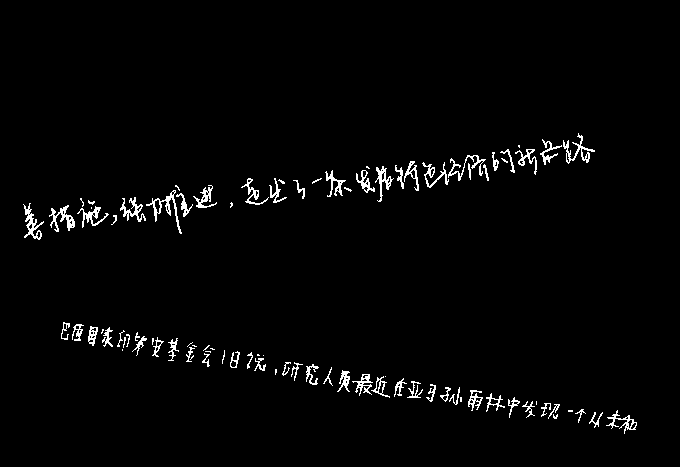 善措施，强力推进，走出了一条发展特色经济的新路
巴西国家印第安基金会18日说，研究人员最近在亚马孙雨林中发现一个从未和